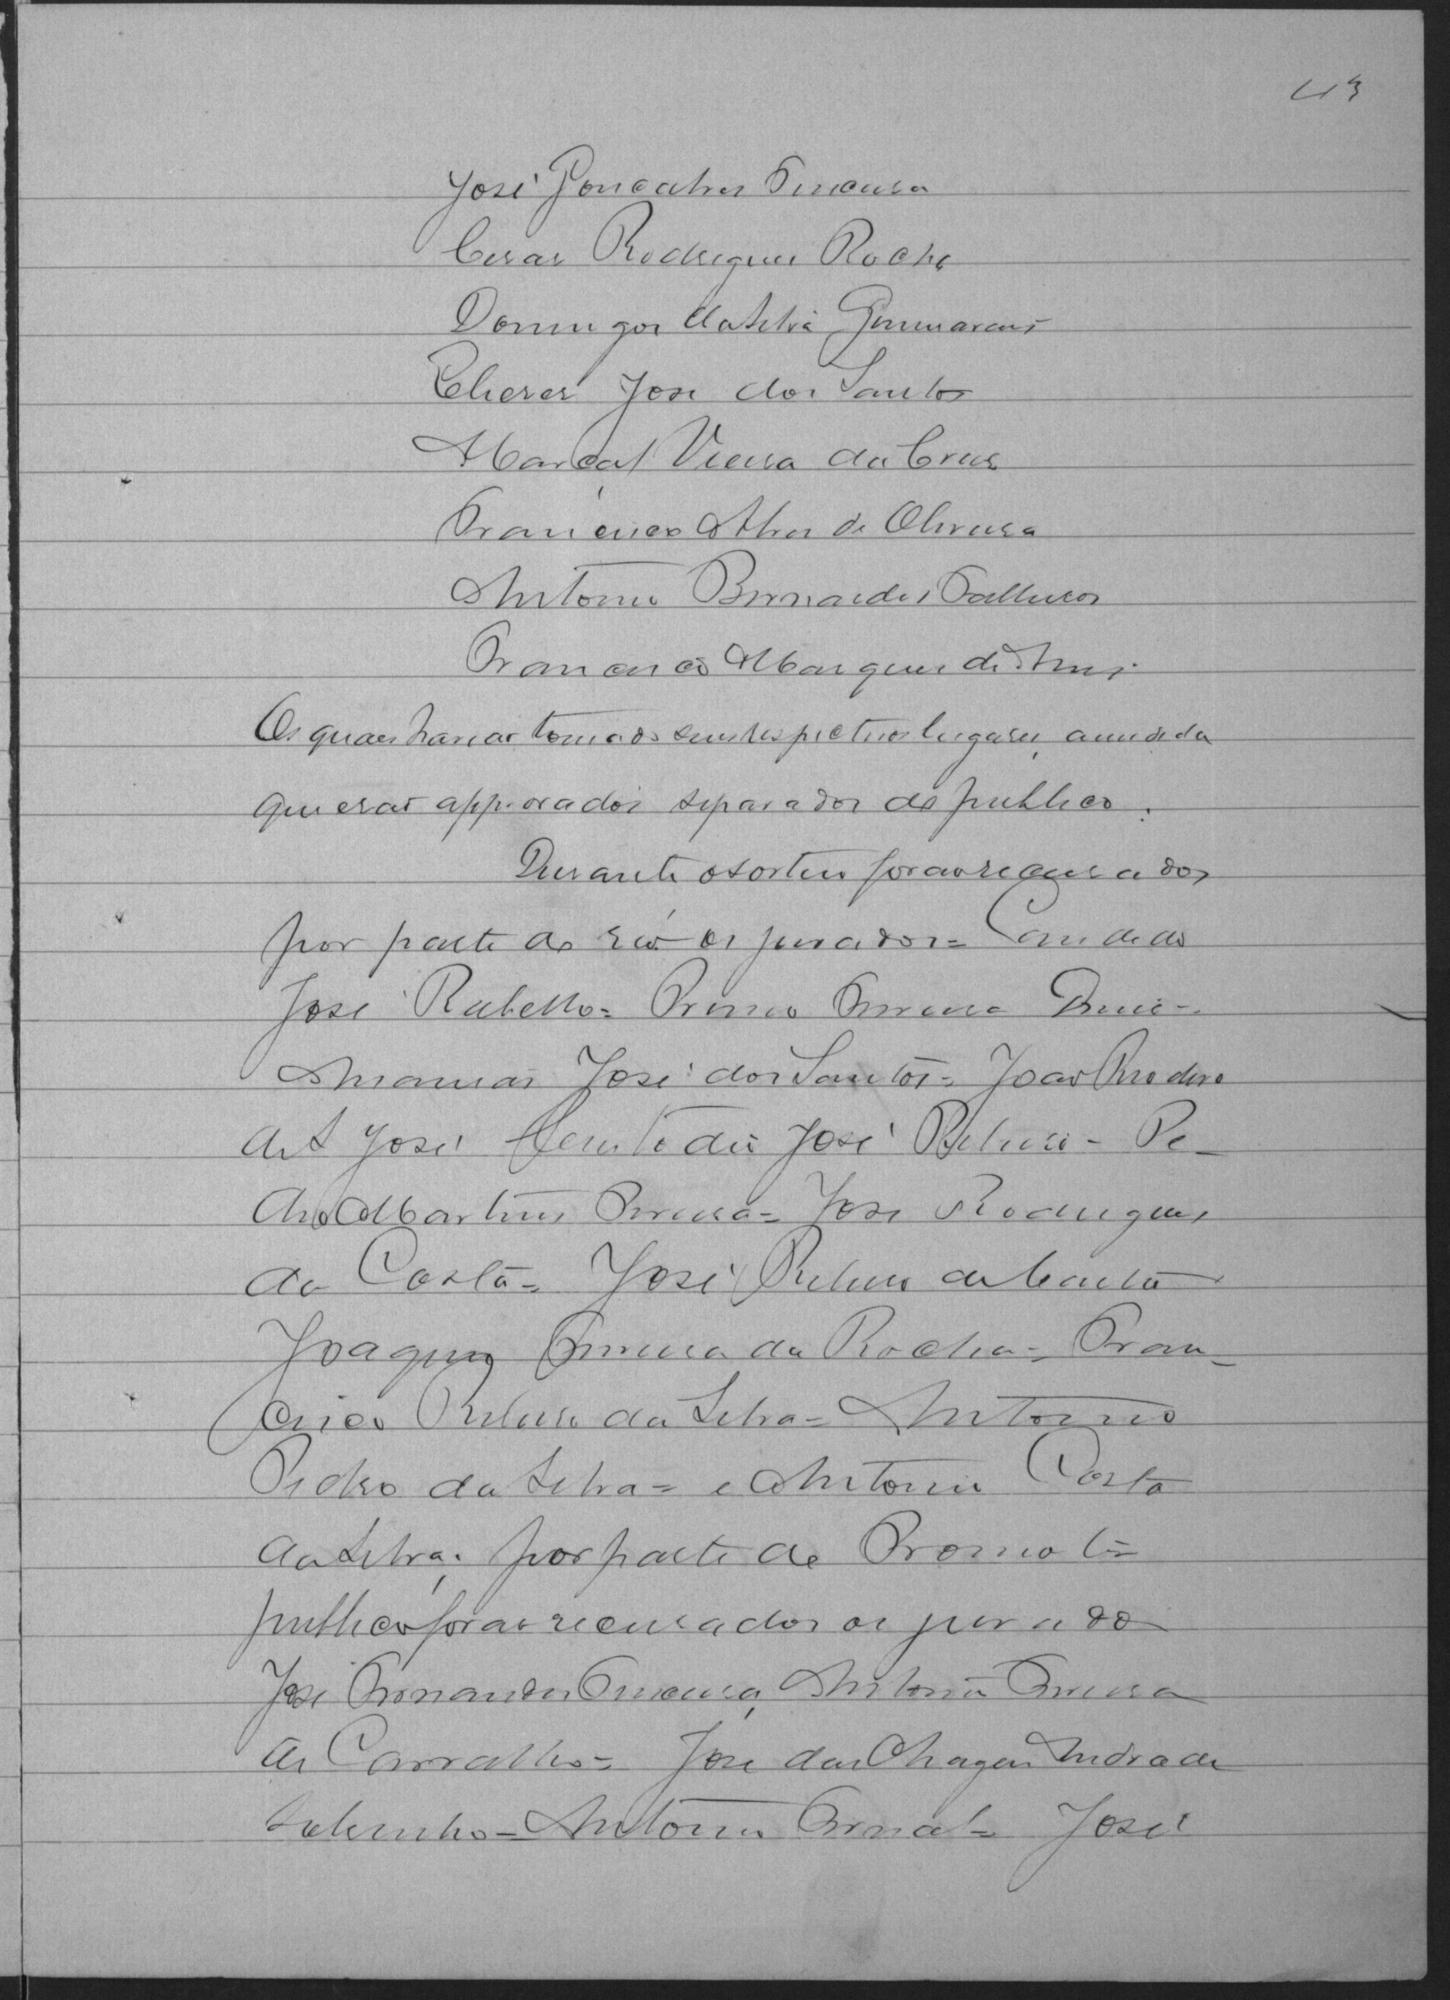 43
José Gonçalves
Cesar Rodrigues Rocha
Domingos da Silva Guimarães
José dos Santos
Marçal Vieira da Cruz
Francisco Alves de Oliveira
Antonio Bernardes
Francisco Marques de
Os quaes haviao tomado seus respectivos lugares, a medida
que erao approvados separados do publico.
Durante o sorteio forao recusados
por parte do réo os jurados = Candido
José Rabello =
José dos Santos = Joao
José José Ribeiro - Pe-
dro Martins Pereira = José Rodrigues
da Costa = José Ribeiro da Costa
Joaquim Ferreira da Rocha = Fran-
cisco Ribeiro da Silva = Antonio
Pedro da Silva = e Antonio Costa
da Silva, por parte do Promotor
publico forao recusados os jurado
José Fernandes Antonio Ferreira
de Carvalho = José das Chagas Andrade
Sobrinho = Antonio José